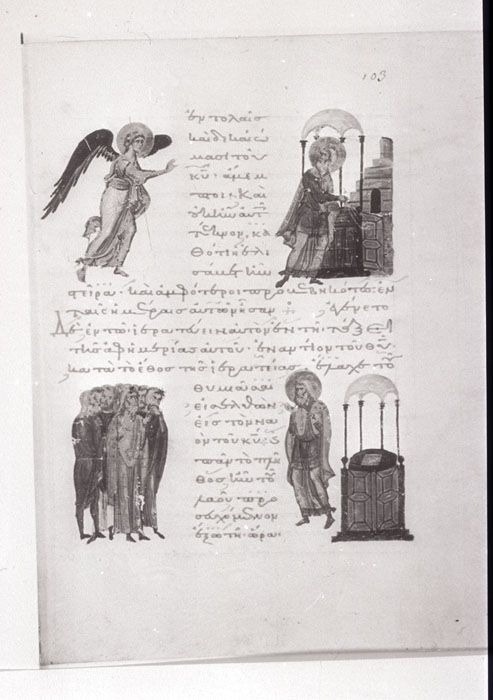 103
ἐντολαῖς
καὶ δικαιώ
μασι τοῦ
κυ· ἄμεμ
πτοι· καὶ
οὐκ ἦν αὐτ
τέκνον, κα
θότι ἡ ἐλι
σάβετ ἦν
στεῖρα· καὶ ἀμφότεροι προβεβηκότες ἐν
ταῖς ἡμέραις αὐτῶν ἦσαν· ἐγένετο
δὲ ἐν τῶ ἱερατεύειν αὐτὸν ἐν τῆ τάξει
τῆς ἐφημερίας αὐτοῦ· ἐναντίον τοῦ θυ
κατὰ τὸ ἔθος τῆς ἱερατείας· ἔλαχε τοῦ
θυμιᾶσαι
εἰσελθὼν
εἰς τὸν να
ὸν τοῦ κυ· καὶ
πᾶν τὸ πλῆ
θος ἦν τοῦ
λαοῦ προ
σευχόμενον
ἔξω τῆ ὥρα